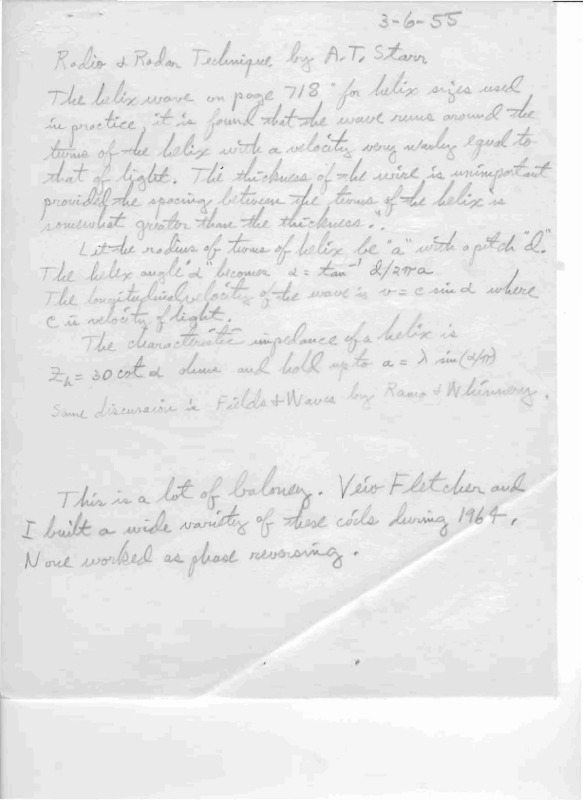 3-6-55
Radio & Radar Technique by A.T. Starr
The helix wave on page 718 "for helix sizes used
in practice, it is found that the wave runs around the
turns of the helix with a velocity very nearly equal to
that of light. The thickness of the wire is unimportant
provided the spacing between the turns of the helix is
somewhat greater than the thickness."
Let the radius of turns of helix be "a" with a pitch "d".
The helix angle "α" becomes α = tan⁻¹ d/2πa.
The longitudinal velocity of the wave is v = c sin α where
c is velocity of light.
The characteristic impedance of a helix is
Zₕ = 30 cot α ohms and hold up to a = λ sin(α/π)
Same discussion in Fields & Waves by Ramo & Whinnery.
This is a lot of baloney. Fletcher and
I built a wide variety of these coils during 1964.
None worked as phase reversing.